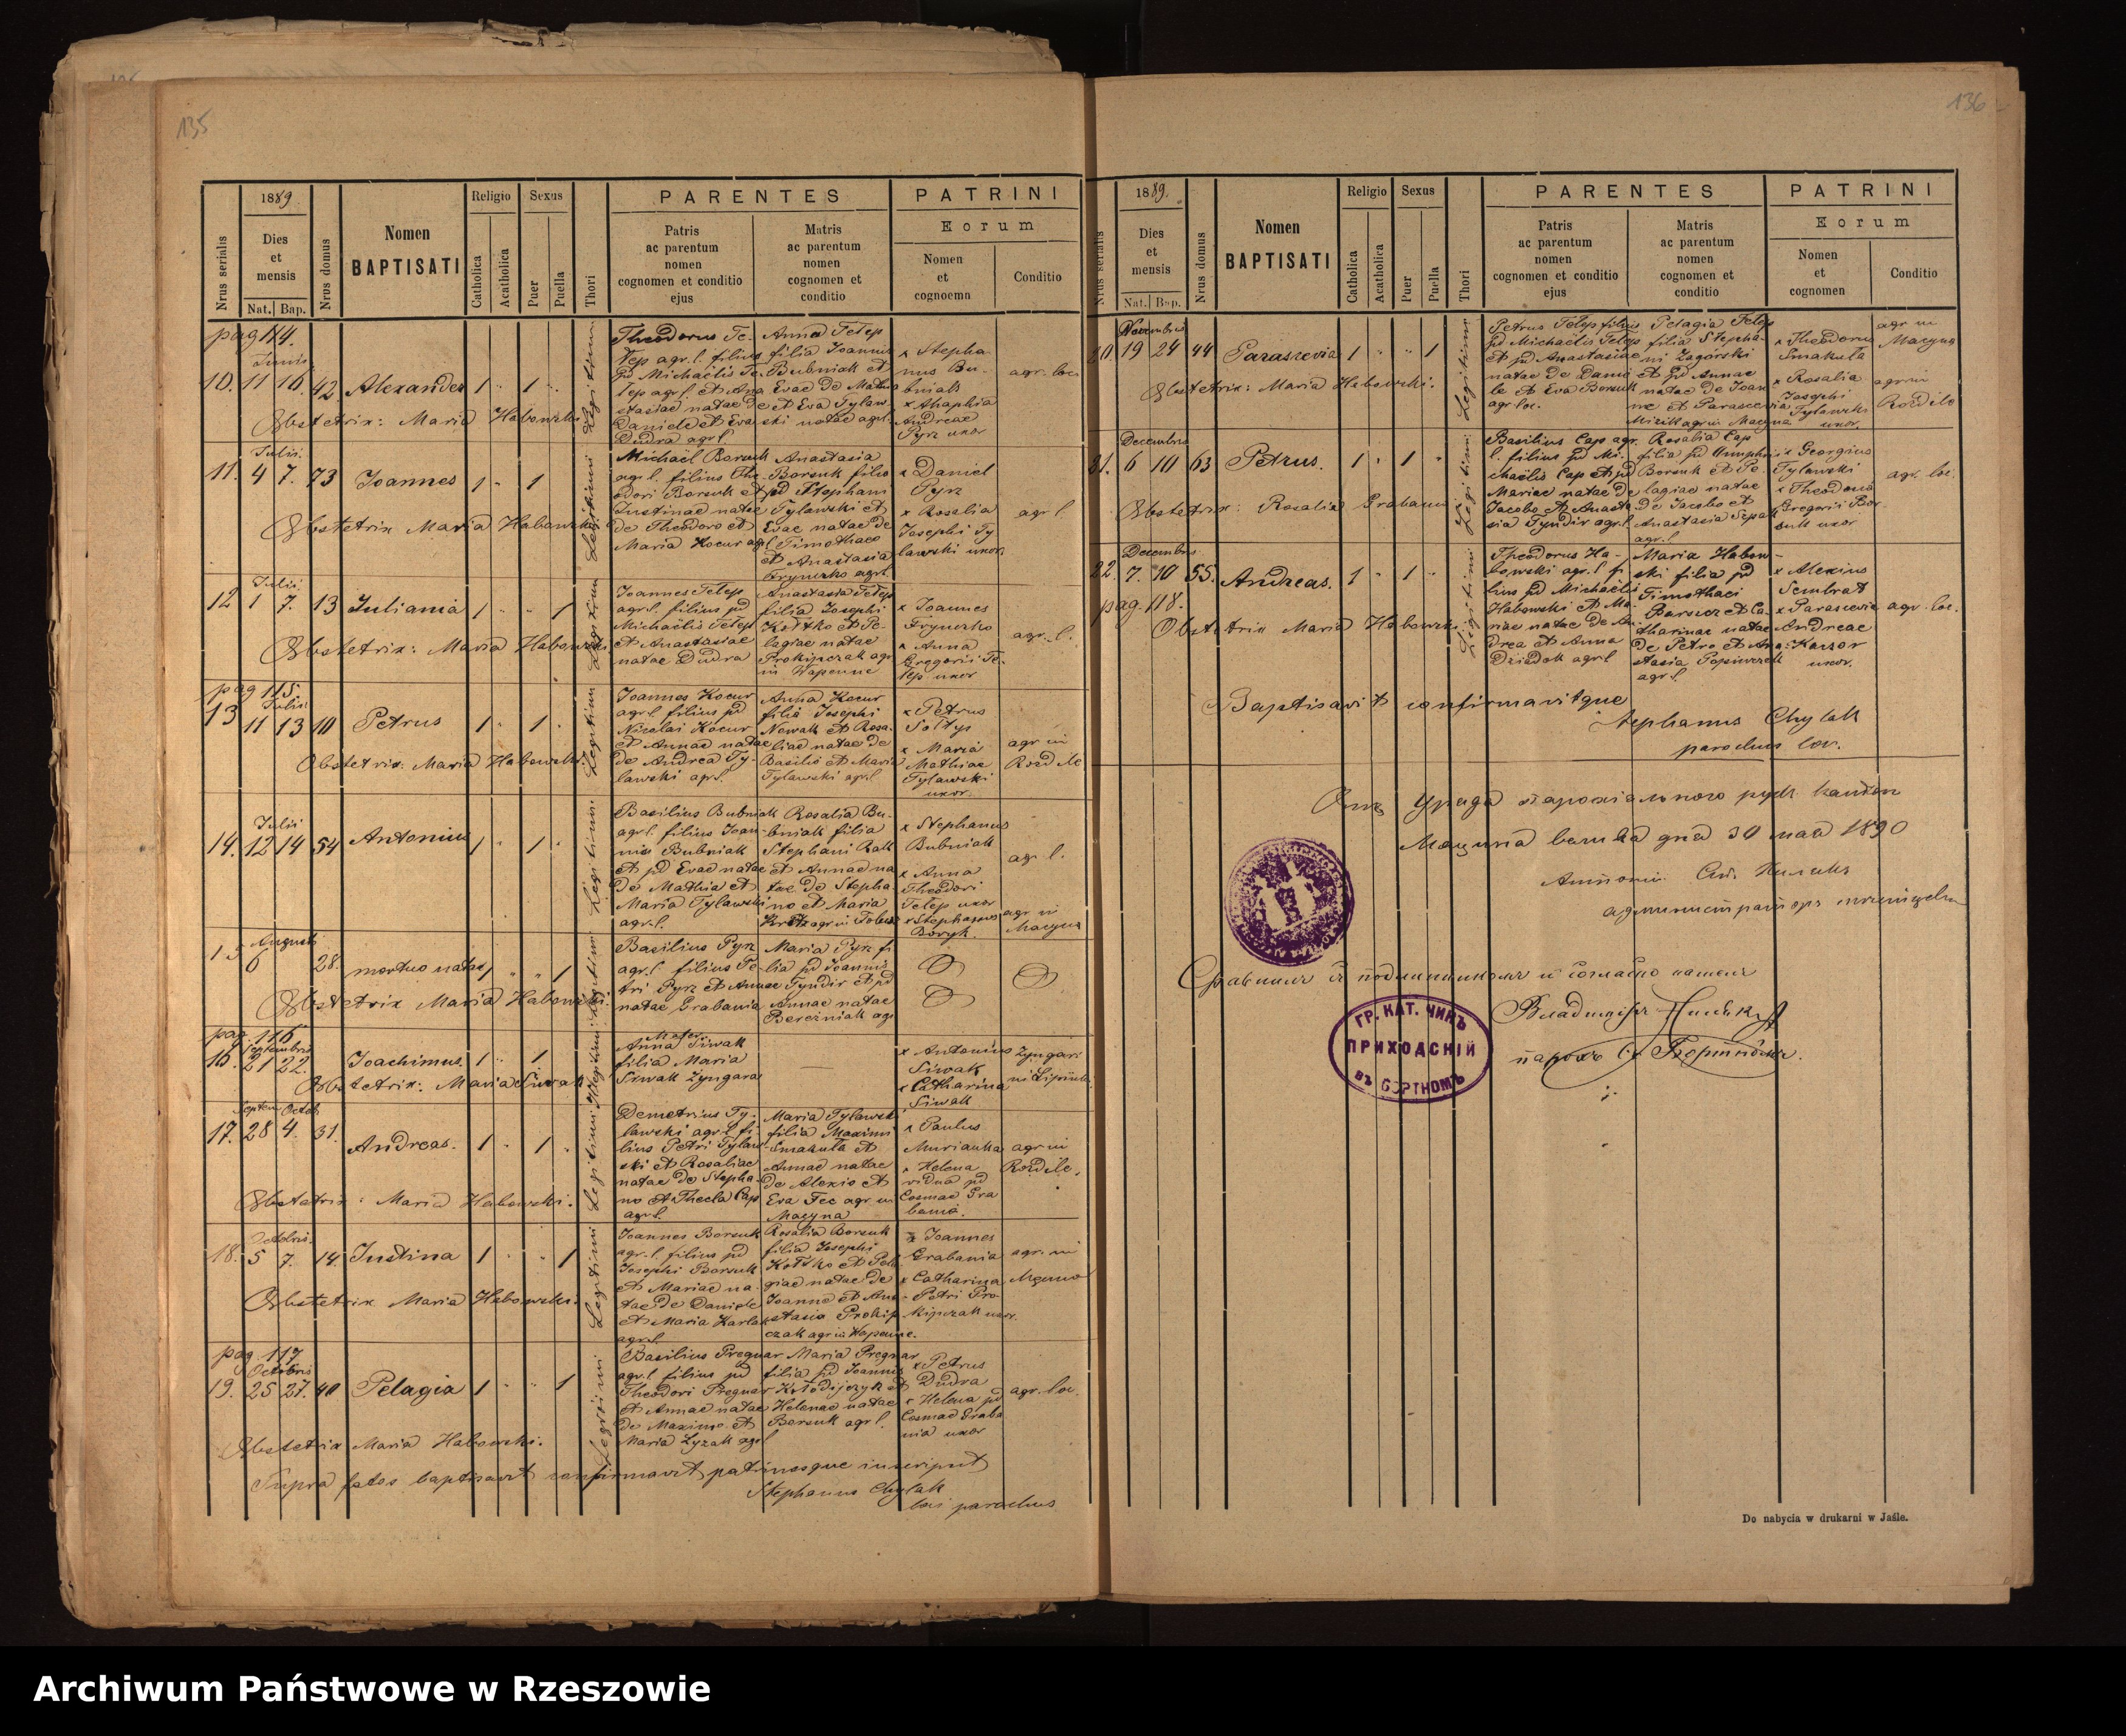 135
1889
Nrus serialis
Dies et mensis
Nat. Bap.
Nrus domus
Nomen BAPTISATI
Religio
Catholica
Acatholica
Sexus
Puer
Puella
Thori
PARENTES
Patris ac parentum nomen cognomen et conditio ejus
Matris ac parentum nomen cognomen et conditio
PATRINI
Eorum
Nomen et cognoemn
Conditio
pag 114.
Junii
10. 11 16. 42 Alexander 1 1 Legitimi
Obstetrix: Maria Habowski
Theodorus Te-
lep agr. l. filius
pd Michaëlis Te-
lep agr l. et Ana
stasiae natae de
Daniele et Eva
Dudra agr l.
Anna Telep
filia Joannis
Bubniak et
Evae de Matis
et Eva Tylaw
ski natae agr l.
x Stepha
nus Bu-
bniak
x Ahaphia
Andreae
Pyrz uxor
agr. loci
Julii
11. 4 7. 73 Joannes 1 1 Legitimi
Obstetrix Maria Habowski
Michaël Borsuk
agr l. filius The-
odori Borsuk et
Justinae natae
de Theodoro et
Maria Kocur agr l.
Anastasia
Borsuk filia
pd Stephani
Tylawski et
Evae natae de
Timothaeo
et Anastasia
Fryncko agr l.
x Daniel
Pyrz
x Rosalia
Josephi Ty
lawski uxor
agr l
Julii
12 1 7. 13 Juliania 1 1
Obstetrix: Maria Habowski
Joannes Telep
agr l. filius pd
Michaëlis Telep
et Anastasiae
natae Dudra
Anastasia Telep
filia Josephi
Kottko et Pe-
lagiae natae
Prokipczak agr
in Wapenne
x Joannes
Fryncko
x Anna
Gregorii Te-
lep uxor
agr. l.
pag 115.
Julii
13 11 13 10 Petrus 1 1 Legitimi
Obstetrix: Maria Habowski
Joannes Kocur
agr l. filius pd
Nicolai Kocur
et Annae natae
de Andrea Ty-
lawski agr l.
Anna Kocur
filia Josephi
Nowak et Rosa-
liae natae de
Basilio et Maria
Tylawski agr l
x Petrus
Soltys
x Maria
Mathiae
Tylawski
uxor.
agr in
Rozdile
Julii
14. 12 14 54 Antonius 1 1 Legitimi
Basilius Bubniak
agr l. filius Joan-
nis Bubniak
et pd Evae natae
de Mathia et
Maria Tylawski
agr l.
Rosalia Bu-
bniak filia
Stephani Rak
et Annae na
tae de Stepha
no et Maria
x Stephanus
Bubniak
x Anna
Theodori
Telep uxor
x Stephanus
Boryk.
agr l.
agr in
Macyna
Augusti
15 6 28. mortuo natus 1
Obstetrix Maria Habowski
Basilius Pyrz
agr l. filius Pe-
tri Pyrz et Annae
natae Grabania
Maria Pyrz fi
lia pd Joannis
Tyndir et pd
Annae natae
Bereżniak agr
pag. 116
Septembris
16. 21 22. Joachimus 1 1
Obstetrix: Maria Siwak
Mater
Anna Siwak
filia Maria
Siwak Zyngara
x Antonius
Siwak
x Catharina
Siwak
Septem Octob
17. 28 4. 31. Andreas. 1 1 Legitimi
Obstetrix: Maria Habowski.
Demetrius Ty-
lawski agr l fi-
lius Petri Tylaw
ski et Rosaliae
natae de Stepha
no et Thecla Cap
agr l.
Maria Tylawski
filia Maximi
Smakula et
Annae natae
de Alexio et
Eva Fec agr in
Macyna
x Paulus
Murianka
x Helena
vidua pd
Cosmae Gra
bania.
agr in
Rozdile.
Octobris
18. 5 7. 14. Justina 1 1 Legitimi
Obstetrix Maria Habowski.
Joannes Borsuk
agr. l. filius pd
Josephi Borsuk
et Mariae na-
tae de Daniele
et Maria Karlak
agr l.
Rosalia Borsuk
filia Josephi
Kottko et Pela
giae natae de
Joanne et Ana-
stasia Prokip
czak agr in Wapenne.
x Joannes
Grabania
x Catharina
Petri Pro-
kipczak uxor.
agr. in
Męcina
pag. 117
Octobris
19. 25 27. 40 Pelagia 1 1 Legitimi
Obstetrix Maria Habowski.
Basilius Pregnar
agr. l. filius pd
Theodori Pregnar
et Annae natae
de Maximo et
Maria Lyzak agr l
Maria Pregnar
filia pd Joannis
Kołodijczyk et
Helenae natae
Borsuk agr l.
x Petrus
Dudra
x Helena pd
Cosmae Graba
nia uxor
agr. loc.
Supra fatos baptisavit confirmavit patrinosque inscripsit
Stephanus Chylak
loci parochus
136
1889.
Nrus serialis
Dies et mensis
Nat. Bap.
Nrus domus
Nomen BAPTISATI
Religio
Catholica
Acatholica
Sexus
Puer
Puella
Thori
PARENTES
Patris ac parentum nomen cognomen et conditio ejus
Matris ac parentum nomen cognomen et conditio
PATRINI
Eorum
Nomen et cognomen
Conditio
Novembris
20. 19 24 44 Parascevia 1 1 Legitimi
Obstetrix: Maria Habowski.
Petrus Telep filius
pd Michaëlis Telep
et pd Anastasiae
natae de Danie
le et Eva Borsuk
agr loc.
Pelagia Telep
filia Stepha-
ni Zagórski
et pd Annae
natae de Joan
ne et Parascevia
Mizik agr in Macyna
x Theodorus
Smakula
x Rosalia
Josephi
Tylawski
uxor.
agr in
Macyna
agr in
Rozdile
Decembris
21. 6 10 63 Petrus. 1 1 Legitimi
Obstetrix: Rosalia Grabania
Basilius Cap agr.
l. filius pd Mi-
chaëlis Cap et pd
Mariae natae de
Jacobo et Anasta
sia Tyndir agr l.
Rosalia Cap
filia pd Onuphrii
Borsuk et Pe-
lagiae natae
de Jacobo et
Anastasia
agr. l
x Georgius
Tylawski
x Theodosia
Gregorii Bor
suk uxor
agr. loc.
Decembris
22. 7. 10 55. Andreas. 1 1 Legitimi
pag. 118.
Obstetrix Maria Habowski
Theodorus Ha-
bowski agr. l fi
lius pd Michaëlis
Habowski et Ma-
riae natae de An-
drea et Anna
Dziadok agr l
Maria Habow-
ski filia pd
Timothaei
Barscz et Ca-
tharinae natae
de Petro et Ana-
stasia
agr l.
x Alexius
Sembrat
x Parascevia
Andreae
Karzor
uxor.
agr. loc.
Baptisavit confirmavitque
Stephanus Chylak
parochus loc.
Отъ Уряда парохіального руск. катол.
Мацина велика дня 30 мая 1890
администраторъ
ГР. КАТ. ЧИНЪ
ПРИХОДСНІЙ
ВЪ БОРТНОМЪ
парохъ
Do nabycia w drukarni w Jaśle.
Archiwum Państwowe w Rzeszowie